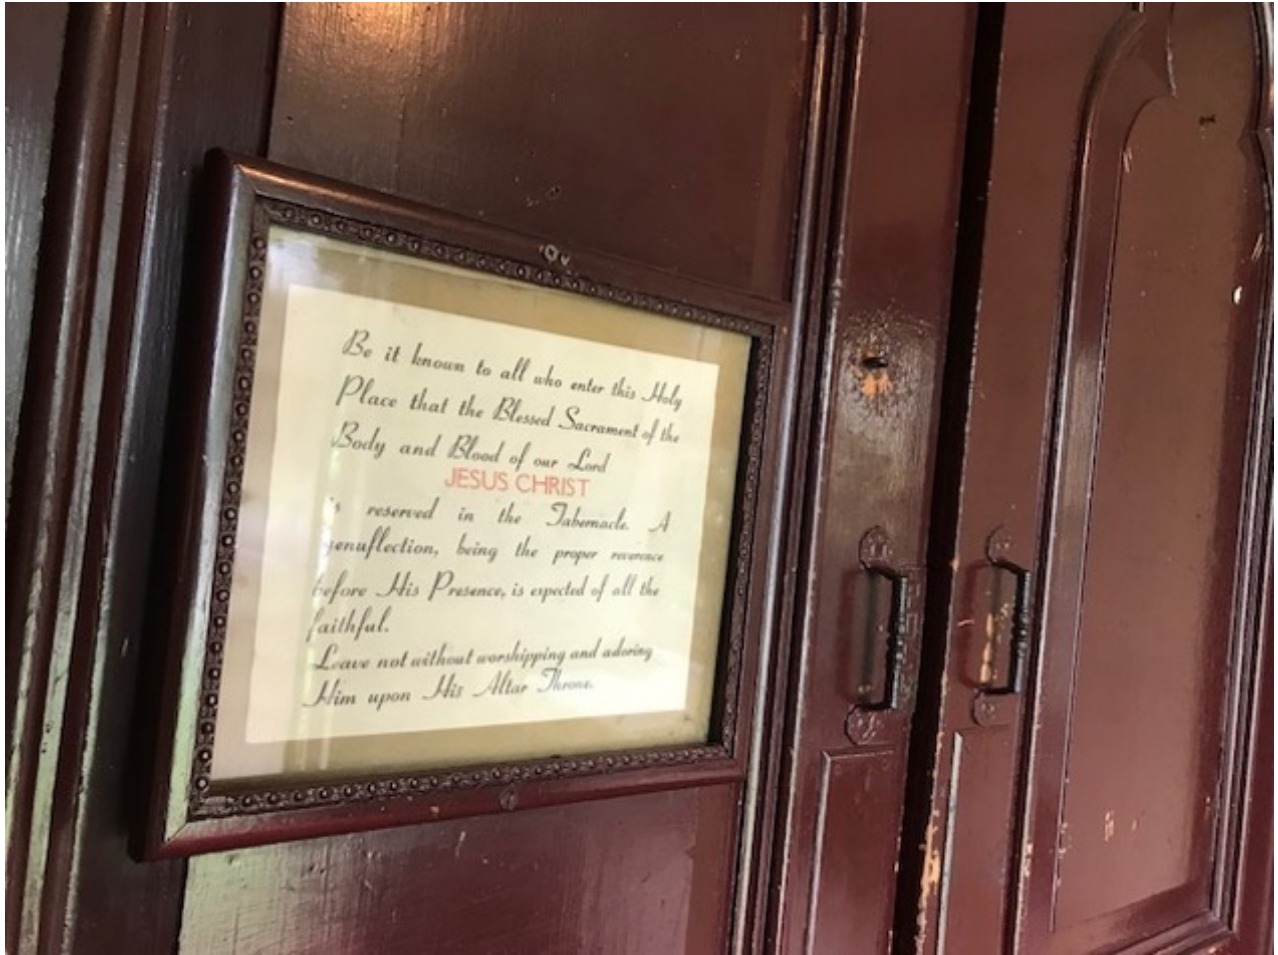 Be it known to all who enter this Holy
Place that the Blessed Sacrament of the
Body and Blood of our Lord
JESUS CHRIST
is reserved in the Tabernacle. A
genuflection, being the proper reverence
before His Presence, is expected of all the
faithful.
Leave not without worshipping and adoring
Him upon His Altar Throne.